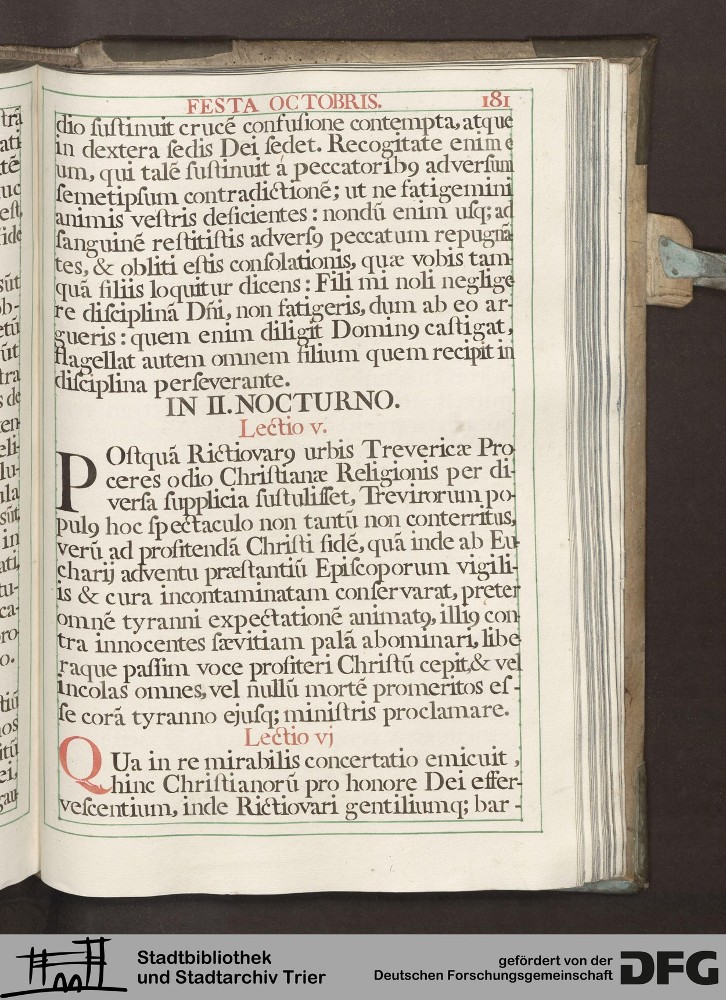 FESTA OCTOBRIS. 181
dio ſuſtinuit crucē confuſione contempta, atque
in dextera ſedis Dei ſedet. Recogitate enim e
um, qui talē ſuſtinuit á peccatorib9 adverſum
ſemetipſum contradictionē; ut ne fatigemini
animis veſtris deficientes: nondū enim uſq; ad
ſanguinē reſtitiſtis adverſ9 peccatum repugnā
tes, & obliti eſtis conſolationis, quæ vobis tam-
quā filiis loquitur dicens: Fili mi noli neglige
re diſciplinā Dñi, non fatigeris, dum ab eo ar-
gueris: quem enim diligit Domin9 caſtigat,
flagellat autem omnem filium quem recipit in
diſciplina perſeverante.
IN II. NOCTURNO.
Lectio v.
POſtquā Rictiovar9 urbis Trevericæ Pro
ceres odio Chriſtianæ Religionis per di-
verſa ſupplicia ſuſtuliſſet, Trevirorum po-
pul9 hoc ſpectaculo non tantū non conterritus,
verū ad profitendā Chriſti fidē, quā inde ab Eu-
charij adventu præſtantiū Epiſcoporum vigili-
is & cura incontaminatam conſervarat, preter
omnē tyranni expectationē animat9, illi9 con
tra innocentes ſævitiam palā abominari, libe
raque paſſim voce profiteri Chriſtū cepit, & vel
incolas omnes, vel nullū mortē promeritos eſ-
ſe corā tyranno ejuſq; miniſtris proclamare.
Lectio vj
QUa in re mirabilis concertatio emicuit,
hinc Chriſtianorū pro honore Dei effer-
veſcentium, inde Rictiovari gentiliumq; bar-
Stadtbibliothek
und Stadtarchiv Trier
gefördert von der
Deutschen Forschungsgemeinschaft
DFG